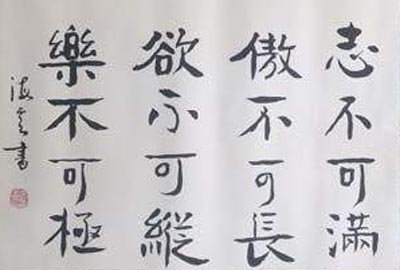 志不可滿
傲不可長
欲不可縱
樂不可極
海雲書